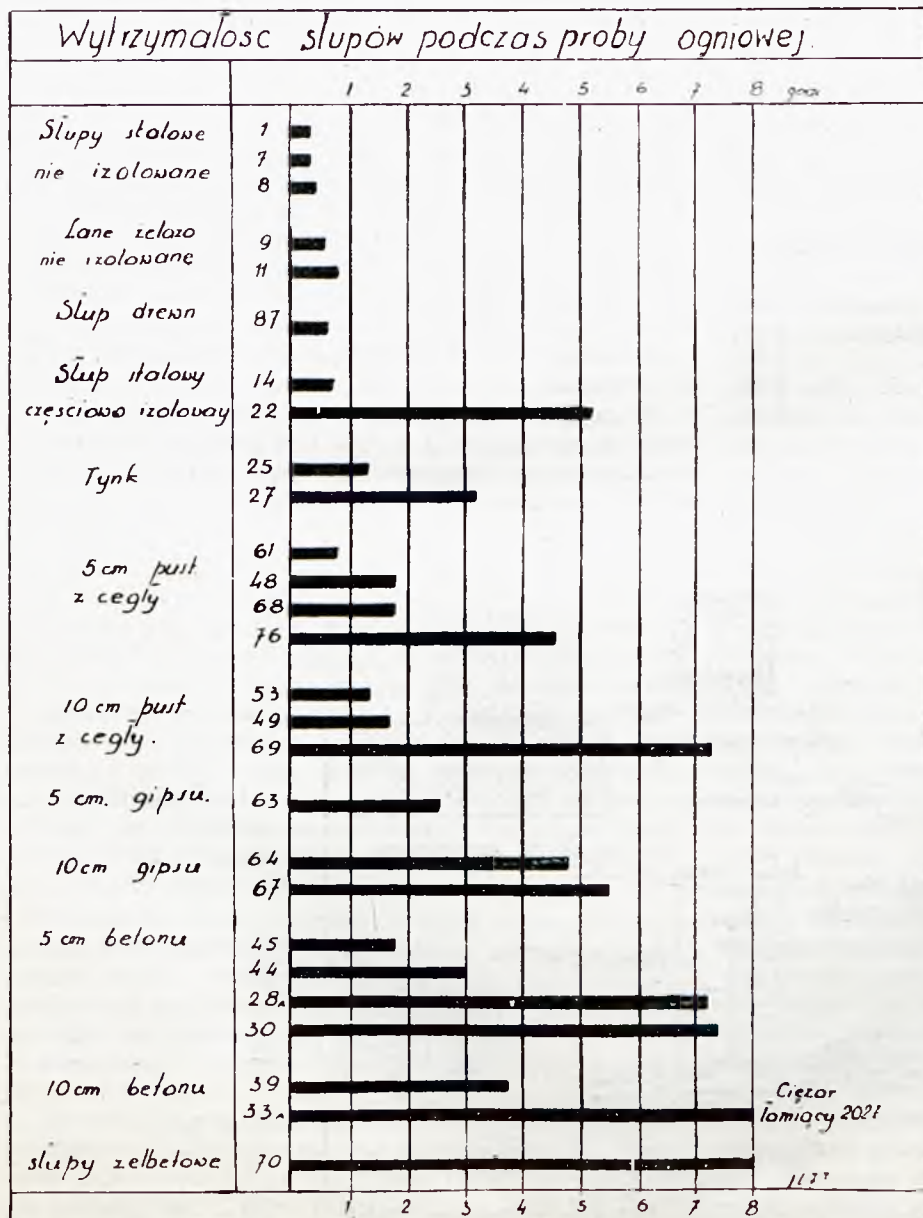 Wytrzymałosc słupów podczas proby ogniowej.
1 2 3 4 5 6 7 8 godz
Słupy stalowe 1
7
nie izolowane 8
Lane zelazo 9
nie izolowane 11
Słup drewn 87
Słup stalowy 14
częsciowo izolovay 22
Tynk 25
27
61
5 cm pust 48
z cegły 68
76
53
10 cm pust 49
z cegły. 69
5 cm. gipsu. 63
10 cm gipsu 64
67
5 cm betonu 45
44
28A
30
10 cm betonu 39
33A
Cięzar
łamiący 202t
słupy zelbetowe 70
1 2 3 4 5 6 7 8